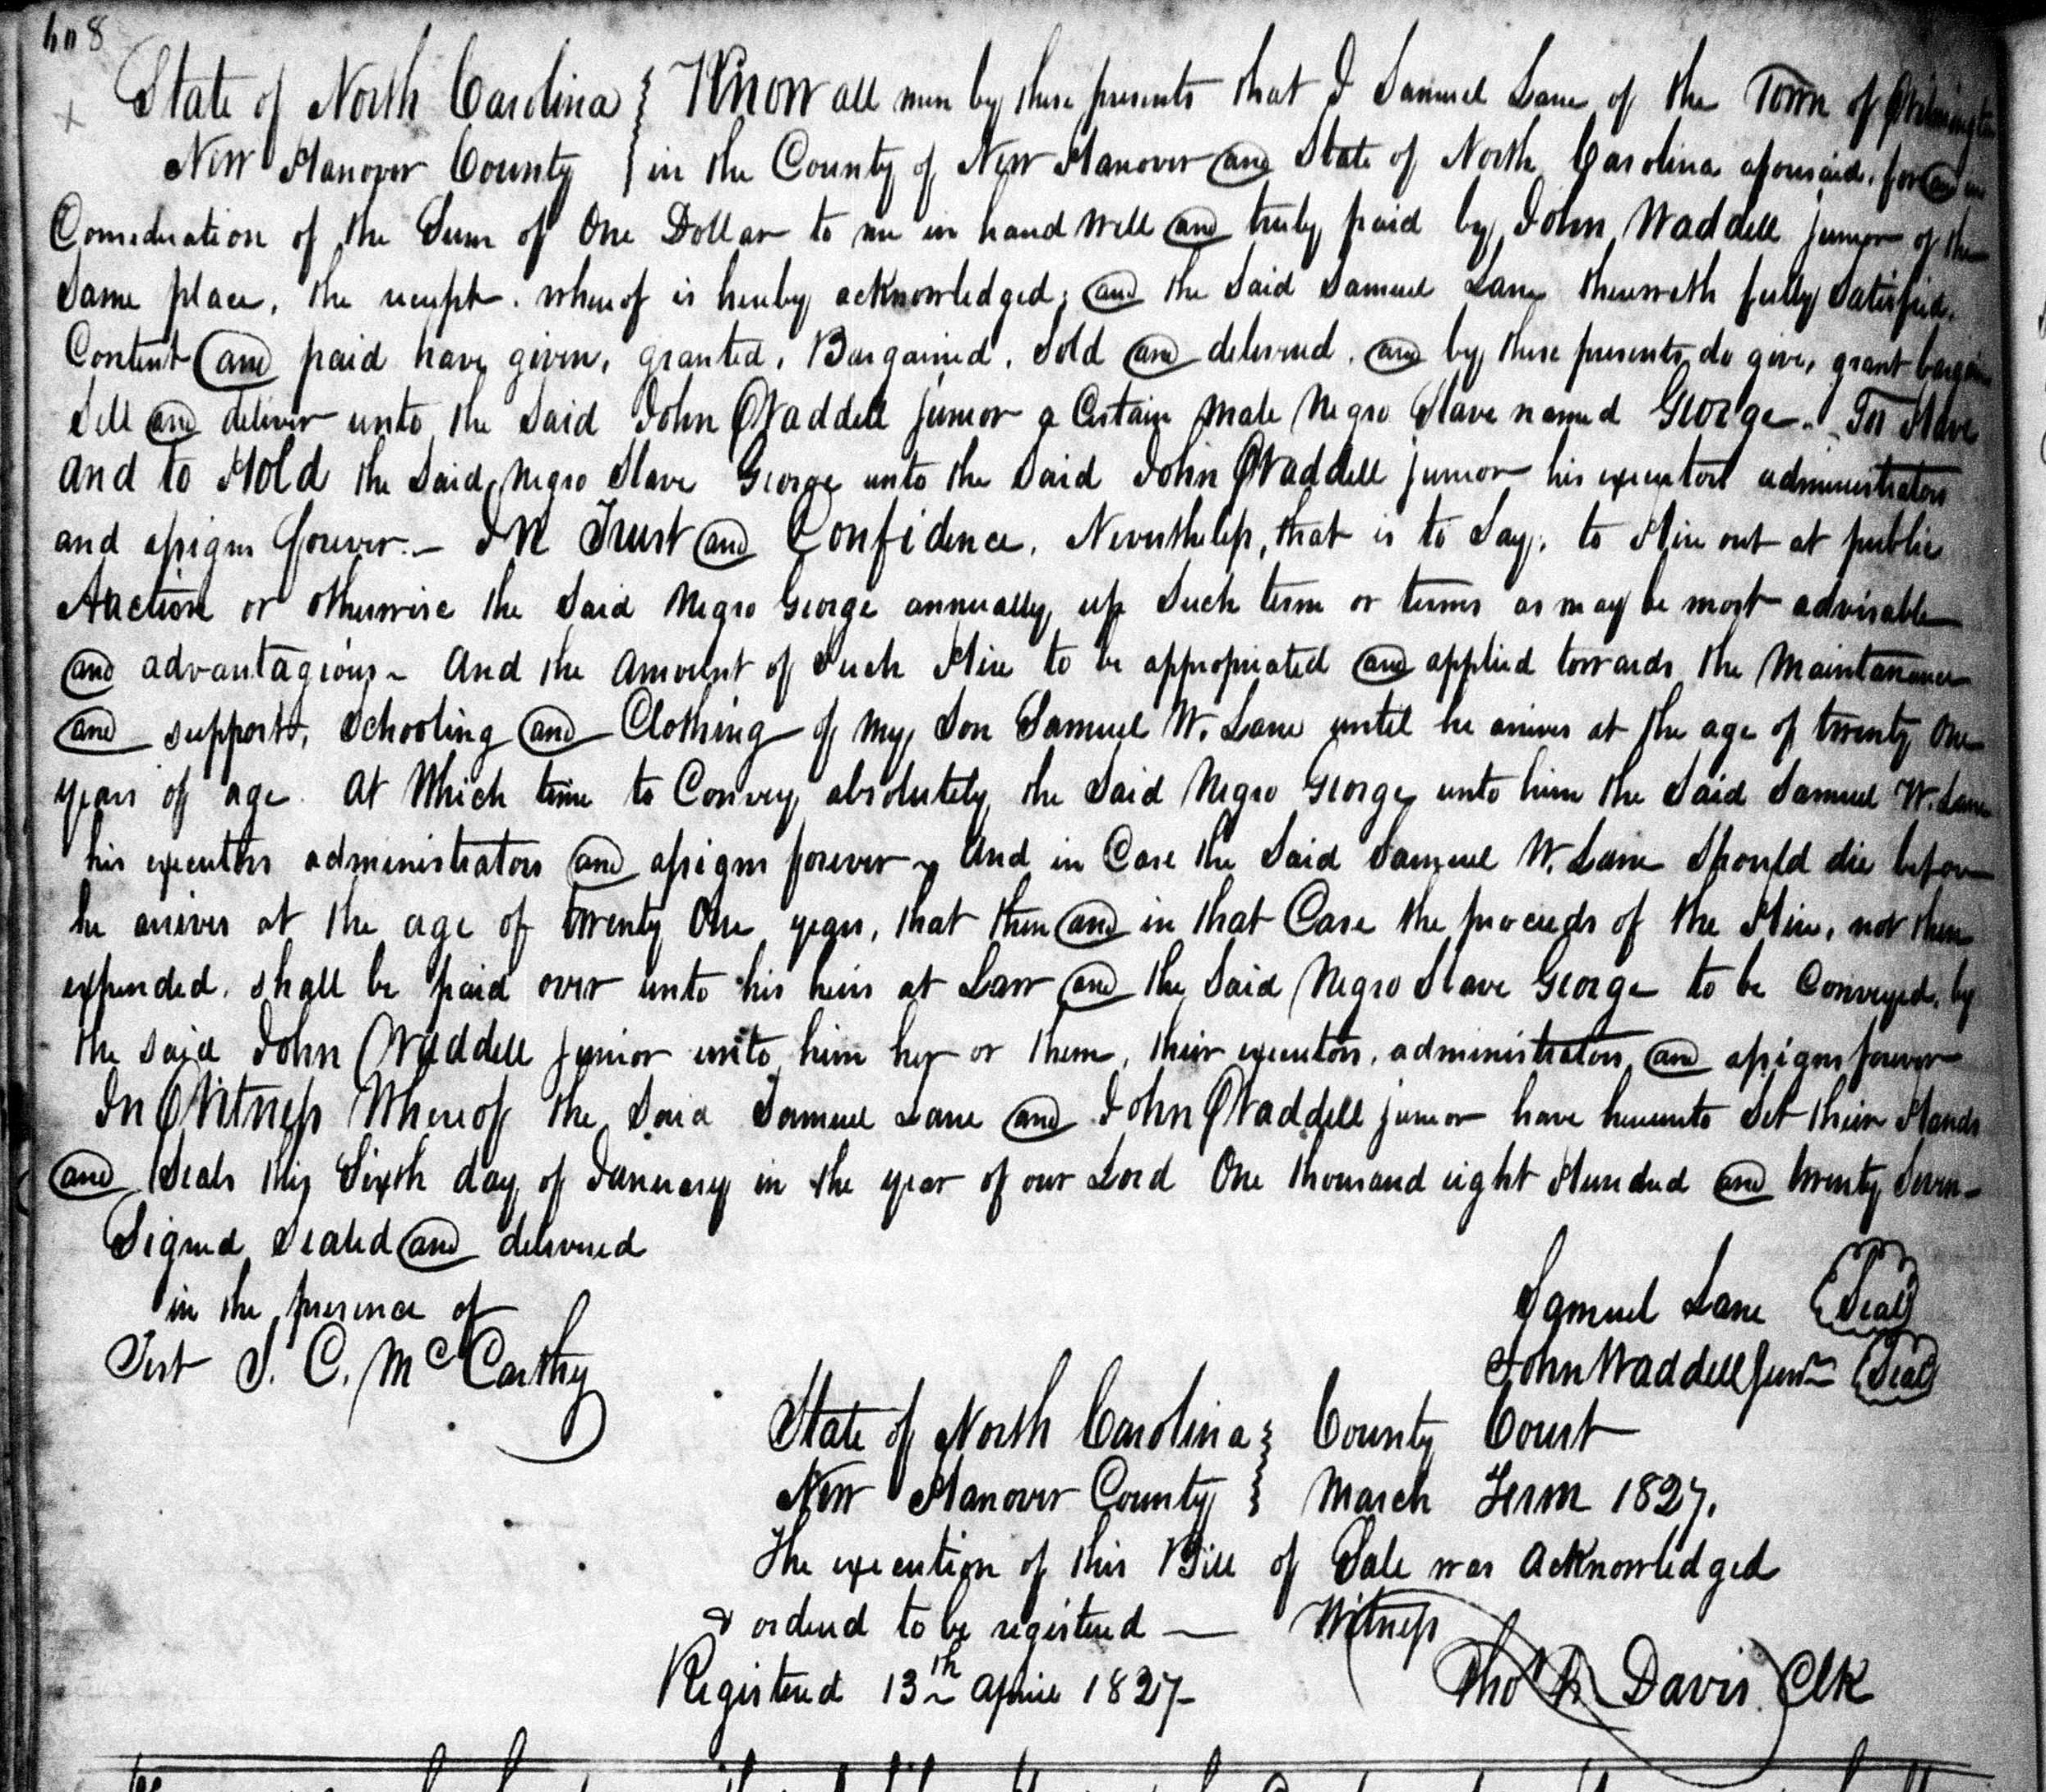 608
State of North Carolina } Know all men by these presents that I Samuel Lane of the Town of Wilmington
New Hanover County } in the County of New Hanover and State of North Carolina aforesaid, for and in
Consideration of the Sum of One Dollar to me in hand well and truly paid by John Waddell junior of the
Same place, the receipt whereof is hereby acknowledged; and the Said Samuel Lane therewith fully Satisfied,
Content and paid have given, granted, Bargained, Sold and delivered, and by these presents do give, grant bargain
Sell and deliver unto the Said John Waddell junior a Certain Male Negro Slave named George. To Have
and to Hold the Said Negro Slave George unto the Said John Waddell junior his executors administrators
and assigns forever.— In Trust and Confidence, Nevertheless, that is to Say, to Hire out at public
Auction or otherwise the Said Negro George annually, up Such term or terms as may be most advisable
and advantagious— And the Amount of Such Hire to be appropriated and applied towards the Maintanance
and support, Schooling and Clothing of my Son Samuel W. Lane until he arives at the age of twenty One
years of age. At Which time to Convey absolutely the Said Negro George unto him the Said Samuel W. Lane
his executors administrators and assigns forever, And in Case the Said Samuel W. Lane Should die before
he arives at the age of twenty One years, that then and in that Case the proceeds of the Hire, not then
expended, shall be paid over unto his heirs at Law and the Said Negro Slave George to be Conveyed, by
the said John Waddell junior unto him her or them, their executors, administrators and assigns forever
In Witness Whereof the Said Samuel Lane and John Waddell junior have hereunto Set their Hands
and Seals this Sixth day of January in the year of our Lord One thousand eight Hundred and twenty Seven—
Signed Sealed and delivered
in the presence of
Samuel Lane (Seal)
Test J. C. McCarthy
John Waddell Junr (Seal)
State of North Carolina } County Court
New Hanover County } March Term 1827.
The execution of this Bill of Sale was Acknowledged
& ordered to be registered — Witness
Registered 13th April 1827— Thos F. Davis Clk